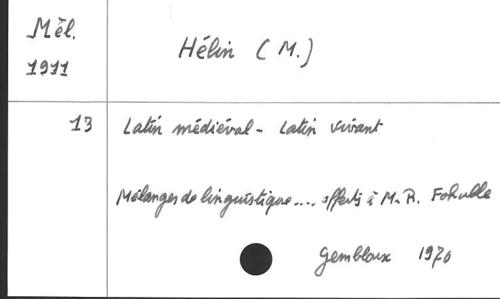 Mél.
1911
Hélin (M.)
13
Latin médiéval - Latin vivant
Mélanges de linguistique.... offerts à M. R. Fohalle
Gembloux 1970